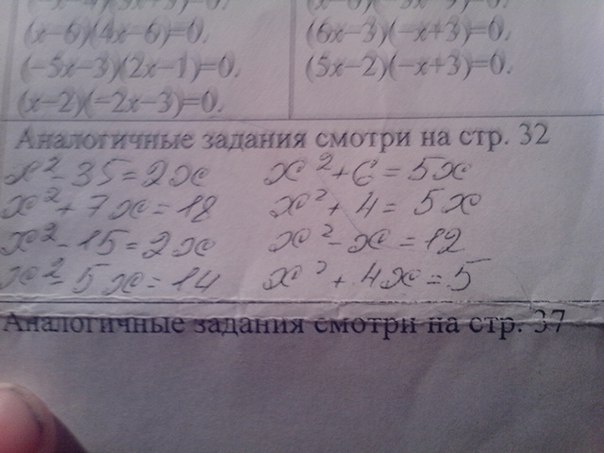 (x-6)(4x-6)=0.
(-5x-3)(2x-1)=0.
(x-2)(-2x-3)=0.
(6x-3)(-x+3)=0.
(5x-2)(-x+3)=0.
Аналогичные задания смотри на стр. 32
x²-35=2x
x²+7x=18
x²-15=2x
x²-5x=14
x²+6=5x
x²+4=5x
x²-x=12
x²+4x=5
Аналогичные задания смотри на стр. 37